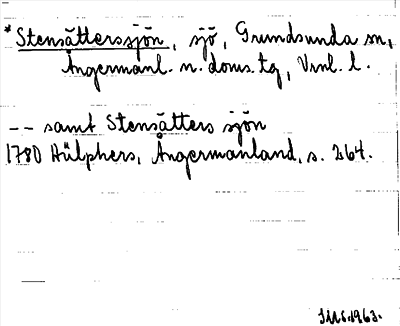 *Stensätterssjön, sjö, Grundsunda sn,
Ångermanl. n. doms. tg, Vnl. l.
-- samt Stensätters sjön
1780 Hülphers, Ångermanland, s. 264.
1963.